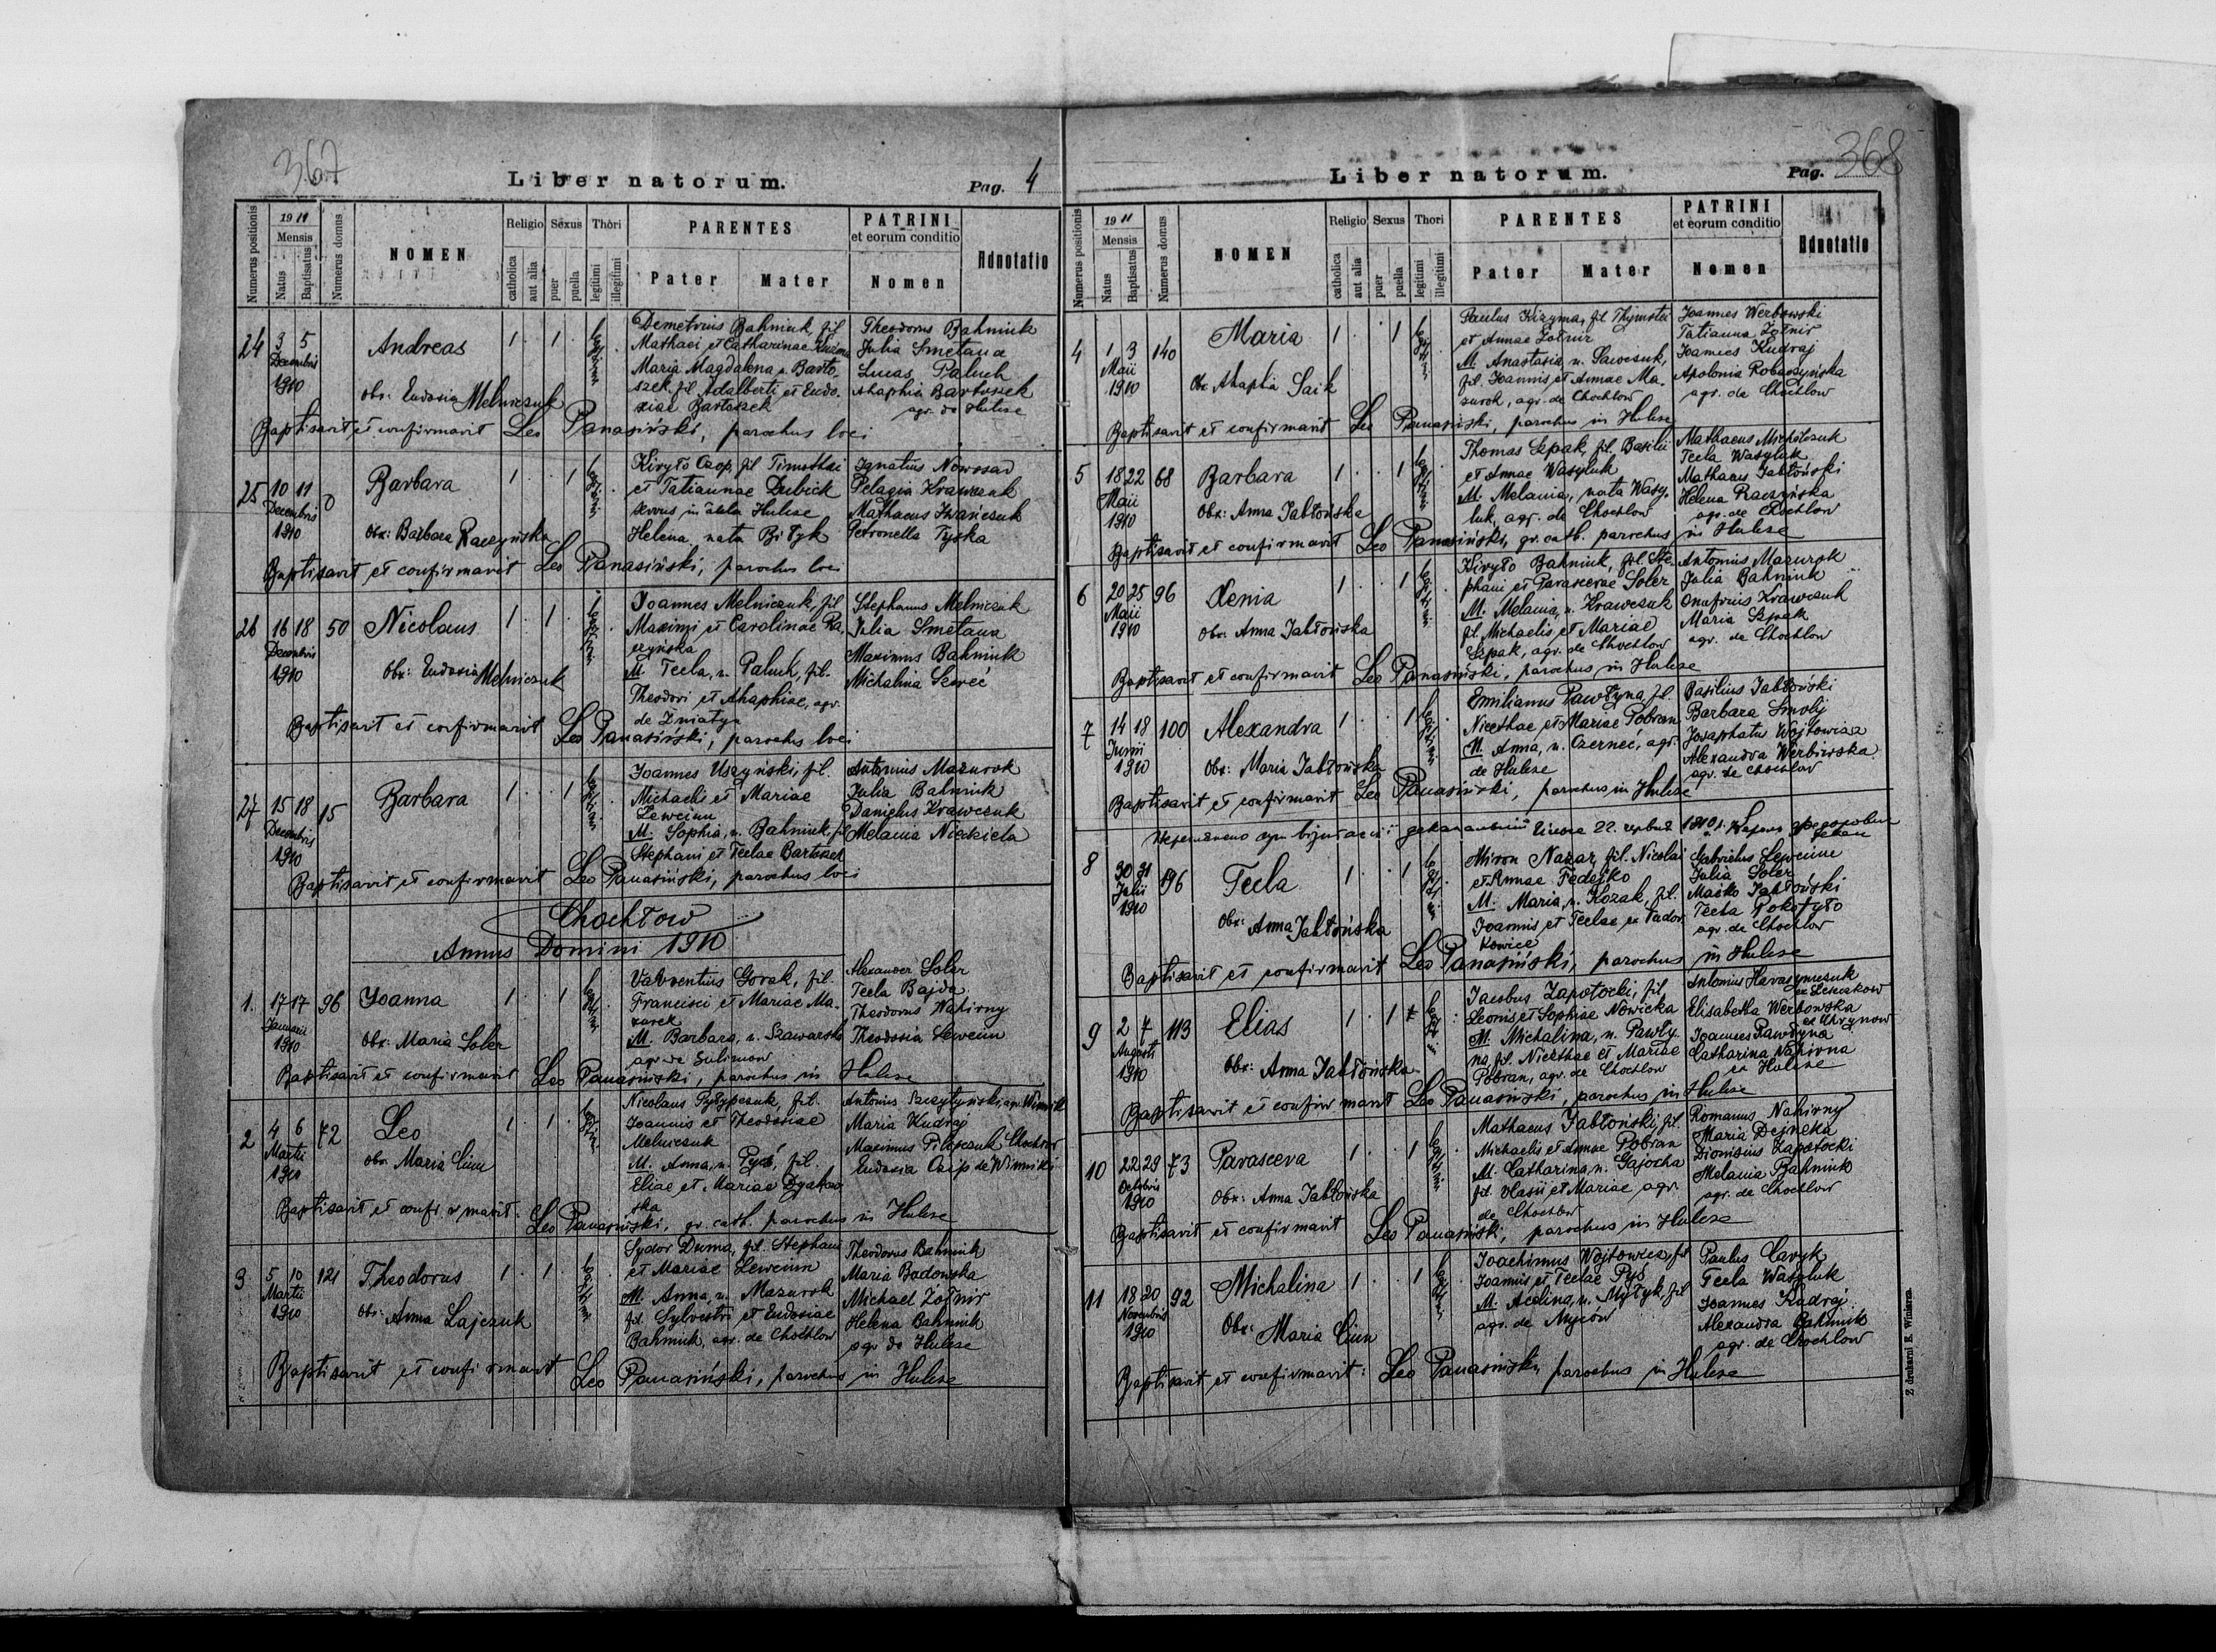 367
Liber natorum.
Pag. 4
Numerus positionis
1910
Mensis
Natus
Baptisatus
Numerus domus
NOMEN
Religio
catholica
aut alia
Sexus
puer
puella
Thori
legitimi
illegitimi
PARENTES
Pater
Mater
PATRINI
et eorum conditio
Nomen
Adnotatio
24
3 5
Decembris
1910
Andreas
Obx: Eudoxia Melniczuk
1 1 legitimi
Demetrius Bahniuk, fil.
Mathaei et Catharinae
Maria Magdalena n. Barto-
szek, fil. Adalberti et Eudo-
xiae Bartoszek
Theodorus Bahniuk
Julia Smetana
Lucas Paluch
Ahaphia Bartoszek
agr. de Hulcze
Baptisavit et confirmavit Leo Panasiński, parochus loci
25
10 11
Decembris
1910
Barbara
Obx: Barbara Raczyńska
1 1 legitimi
Kiryło Czop, fil. Timothei
et Tatiannae Dubick
servus in aula Hulcze
Helena, nata Biłyk
Ignatius Nowosad
Pelagia Krawczuk
Mathaeus Iwańczuk
Petronella Tyska
Baptisavit et confirmavit Leo Panasiński, parochus loci
26
16 18 50
Decembris
1910
Nicolaus
Obx: Eudoxia Melniczuk
1 1 legitimi
Joannes Melniczuk, fil.
Maximi et Carolinae Ra-
czyńska
M. Tecla, n. Paluk, fil.
Theodori et Ahaphiae, agr.
de Żniatyn
Stephanus Melniczuk
Julia Smetana
Maximus Bahniuk
Michalina Szwec
Baptisavit et confirmavit Leo Panasiński, parochus loci
27
15 18 15
Decembris
1910
Barbara
1 1 legitimi
Joannes Uszyński, fil.
Michaelis et Mariae
Lewciun
M. Sophia, n. Bahniuk, fil.
Stephani et Teclae Bartoszek
Antonius Mazurok
Julia Bahniuk
Danielus Krawczuk
Melania Niedziela
Baptisavit et confirmavit Leo Panasiński, parochus loci
Chochłow
Annus Domini 1910
1.
17 17 96
Januarii
1910
Joanna
Obx: Maria Soler
1 1 legitimi
Valventius Gorak, fil.
Francisci et Mariae Ma-
zurek
M. Barbara, n. Szawarska
agr. de Sulimow
Alexander Soler
Tecla Bajda
Theodorus Nahirny
Theodosia Lewciun
Baptisavit et confirmavit Leo Panasiński, parochus in Hulcze
2
4 6 72
Martii
1910
Leo
Obx. Maria Ciun
1 1 legitimi
Nicolaus Pyłypczuk, fil.
Joannis et Theodosiae
Melniczuk
M. Anna, n. Pyś, fil.
Eliae et Mariae Dyakow-
ska
Antonius Szczytyński, agr. Winnik
Maria Kudraj
Maximus Pilipczuk Chochłow
Eudoxia Osip de Winniki
Baptisavit et confirmavit. Leo Panasiński, gr. cath. parochus in Hulcze
3
5 10 121
Martii
1910
Theodorus
Obx: Anna Lajczuk
1 1 legitimi
Sydor Duma, fil. Stephani
et Mariae Lewciun
M. Anna, n. Mazurok
fil. Sylvestri et Eudoxiae
Bahniuk, agr. de Chochłow
Theodorus Bahniuk
Maria Badowska
Michael Żołnir
Helena Bahniuk
agr. de Hulcze
Baptisavit et confirmavit Leo Panasiński, parochus in Hulcze
368
Liber natorum.
Pag.
Numerus positionis
1910
Mensis
Natus
Baptisatus
Numerus domus
NOMEN
Religio
catholica
aut alia
Sexus
puer
puella
Thori
legitimi
illegitimi
PARENTES
Pater
Mater
PATRINI
et eorum conditio
Nomen
Adnotatio
4
1 3 140
Maii
1910
Maria
Obx. Ahaphia Saik
1 1 legitimi
Paulus Kizyma, fil. Thymotei
et Annae Żołnir
M. Anastasia n. Sawczuk,
fil. Joannis et Annae Ma-
zurok, agr. de Chochłow
Joannes Werbowski
Tatianna Żołnir
Joannes Kudraj
Apolonia Robaczyńska
agr. de Chochłow
Baptisavit et confirmavit Leo Panasiński, parochus in Hulcze
5
18 22 68
Maii
1910
Barbara
Obx: Anna Jabłońska
1 1 legitimi
Thomas Szpak, fil. Basilii
et Annae Wasyluk
M. Melania, nata Wasy-
luk, agr. de Chochłow
Mathaeus Michalczuk
Tecla Wasyluk
Mathaeus Jabłoński
Helena Raczyńska
agr. de Chochłow
Baptisavit et confirmavit Leo Panasiński, gr. cath. parochus in Hulcze
6
20 25 96
Maii
1910
Xenia
Obx. Anna Jabłońska
1 1 legitimi
Kiryło Bahniuk, fil. Ste-
phani et Parascevae Soler
M. Melania, n. Krawczuk
fil. Michaelis et Mariae
Szpak, agr. de Chochłow
Antonius Mazurok
Julia Bahniuk
Onufrius Krawczuk
Maria Szpak
agr. de Chochłow
Baptisavit et confirmavit Leo Panasiński, parochus in Hulcze
7
14 18 100
Junii
1910
Alexandra
Obx: Maria Jabłońska
1 1 legitimi
Emilianus Pawłyna, fil.
Nicethae et Mariae Pobran
M. Anna, n. Czerneć, agr.
de Hulcze
Basilius Jabłoński
Barbara Smolij
Josaphatus Wojtowicz
Alexandra Werbowska
agr. de Chochłow
Baptisavit et confirmavit Leo Panasiński, parochus in Hulcze
8
30 31 196
Julii
1910
Tecla
Obx: Anna Jabłońska
1 1 legitimi
Miron Nazar, fil. Nicolai
et Annae Fedejko
M. Maria, n. Kozak, fil.
Joannis et Teclae ex Tudor-
kowice
Gabrielus Lewciun
Julia Soler
Maśko Jabłoński
Tecla Pokotyło
agr. de Chochłow
Baptisavit et confirmavit Leo Panasiński, parochus in Hulcze
9
2 7 113
Augusti
1910
Elias
Obx: Anna Jabłońska
1 1 legitimi
Jacobus Zapotocki, fil.
Leonis et Sophiae Nowicka
M. Michalina, n. Pawły-
na, fil. Nicethae et Mariae
Pobran, agr. de Chochłow
Antonius Harasymczuk
Elisabetha Werbowska
ex Uhrynow
Joannes Pawłyna
Catharina Nahirna
ex Hulcze
Baptisavit et confirmavit Leo Panasiński, parochus in Hulcze
10
22 29 73
Octobris
1910
Parasceva
Obx: Anna Jabłońska
1 1 legitimi
Mathaeus Jabłoński, fil.
Michaelis et Annae Pobran
M. Catharina, n. Gajocha
fil. Vlasii et Mariae, agr.
de Chochłow
Romanus Nahirny
Maria Dejneka
Dionisius Zapotocki
Melania Bahniuk
agr. de Chochłow
Baptisavit et confirmavit Leo Panasiński, parochus in Hulcze
11
18 20 92
Novembris
1910
Michalina
Obx: Maria Ciun
1 1 legitimi
Joachimus Wojtowicz, fil.
Joannis et Teclae Pyś
M. Acelina, n. Mytyk, fil.
agr. de Myców
Paulus Cavyk
Tecla Wasyluk
Joannes Kudraj
Alexandra Bahniuk
agr. de Chochłow
Baptisavit et confirmavit: Leo Panasiński, parochus in Hulcze
Z drukarni E. Winiarza.